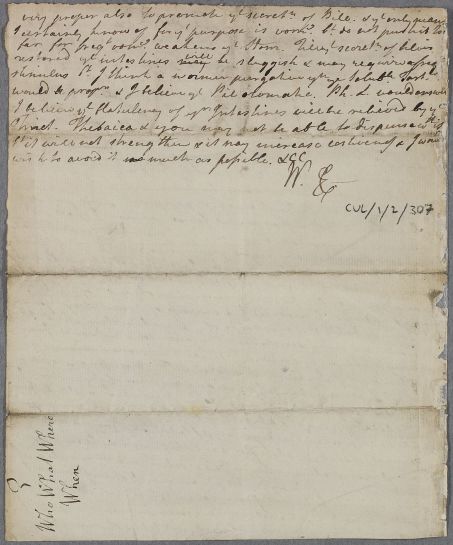 very proper also to promote yt secretn. of Bile. & yt only means
I certainly know of for yt purpose is vomts. bt. do not push it too
far for freqt. vomts. weakens yt Stom. Till yt secretn. of bile is
restored yt intestines will be sluggish & may require a
stimulus bt. I think a warmer purgative yn ye Soluble Tart
would be proper & I believe yt Pil Stomatic. Ph. L would answer
I believe yt flatulency of yr Intestines will be relieved by yt
Tinct. Thebaica & you may not be able to dispense
bt it will not strengthen & it may increase costiveness & I would
wish to avoid it as much as possible. &c
W. C
CUL/1/2/307
Who What Where
When
?